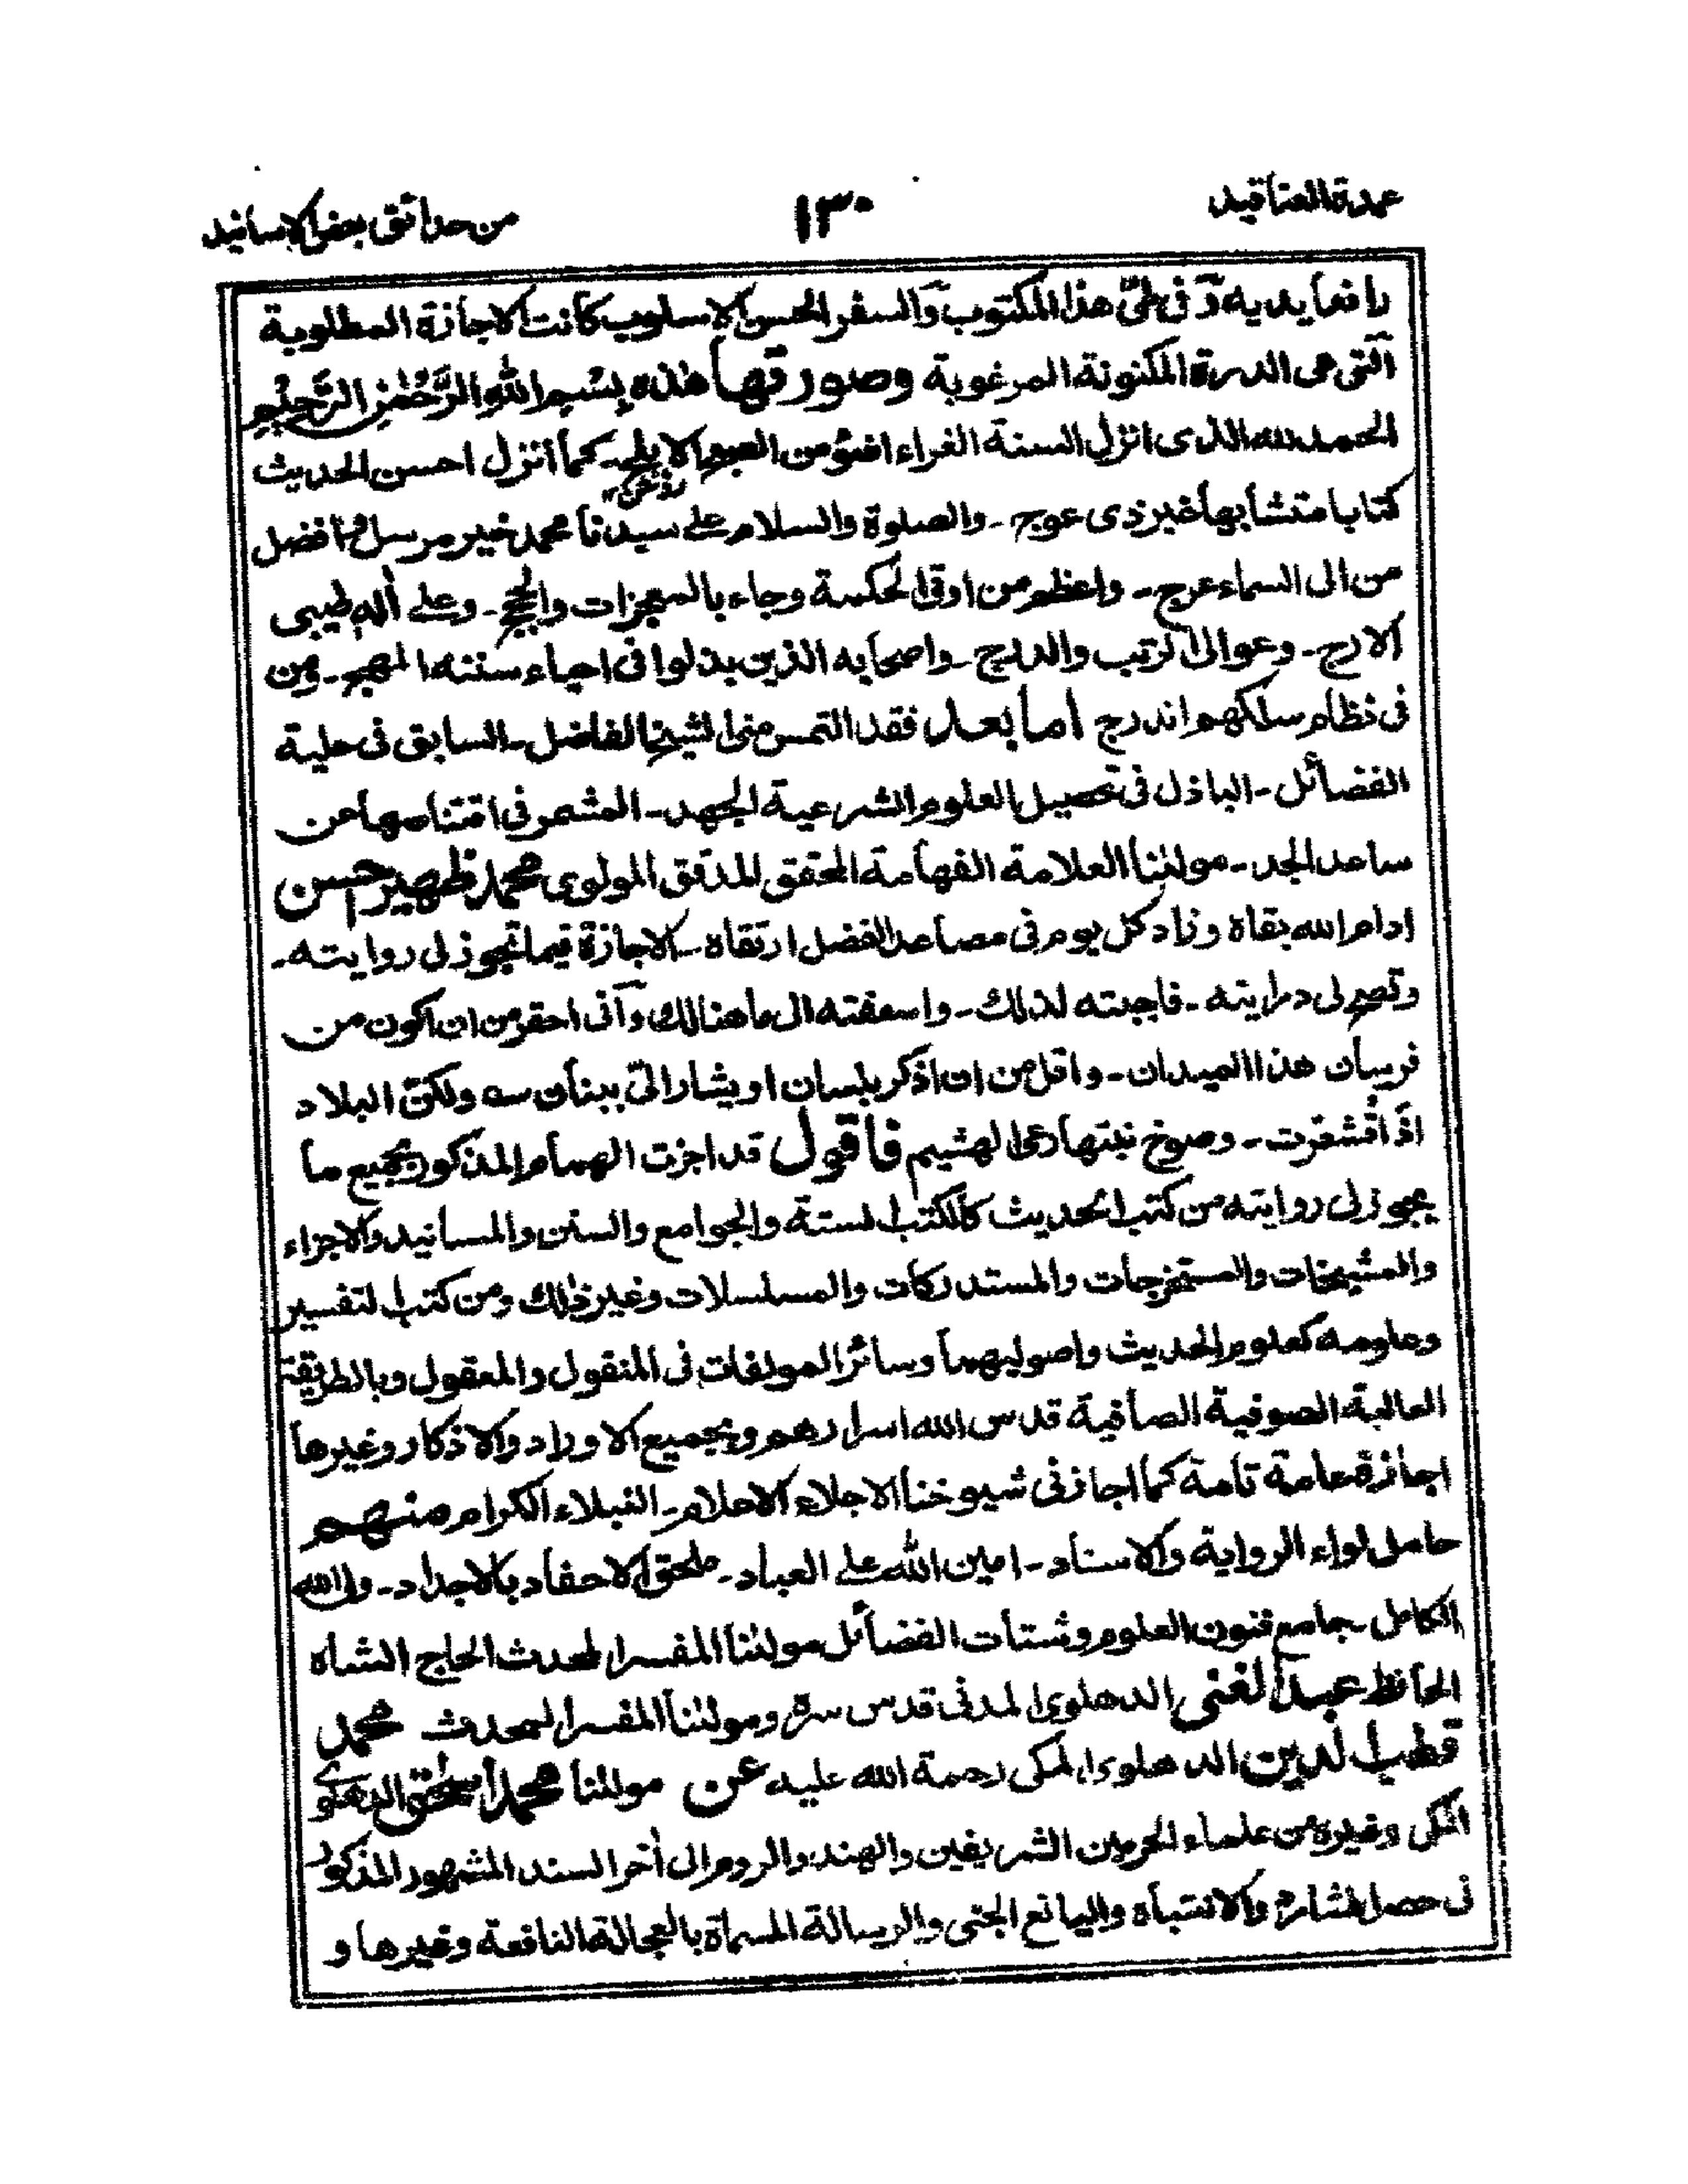 عمدة العناقيد ١٣٠ من حدائق بعض الاسانيد
رافعا يديه وفى طى هذا المكتوب والسفر الحسن الاسلوب كانت الاجازة المطلوبة
التى هى الدرة المكنونة المرغوبة وصورتها هذه بسم الله الرحمن الرحيم
الحمد لله الذى انزل السنة الغراء اضوٴ من الصبح الابلج ـ كما انزل احسن الحديث
روشن ۱۲
كتابا متشابها غير ذى عوج ـ والصلوة والسلام على سيدنا محمد خير مرسل وافضل
من الى السماء عرج ـ واعظم من اوتى الحكمة وجاء بالمعجزات والحجج ـ وعلى أله طيبى
الارج ـ وعوالى الرتب والدرج ـ واصحابه الذين بذلوا فى احياء سننه المهج ـ ومن
فى نظام سلكهم اندرج اما بعد فقد التمس منى الشيخ الفاضل ـ السابق فى حلية
الفضائل ـ الباذل فى تحصيل العلوم الشرعية الجهد ـ المشمر فى اقتناصها عن
ساعد الجد ـ مولٰنا العلامة الفهامة المحقق المدقق المولوى محمد ظهير احسن
ادام الله بقاه وزاد كل يوم فى مصاعد الفضل ارتقاه ـ الاجازة فيما تجوز لى روايته ـ
وتصح لى درايته ـ فاجبته لذلك ـ واسعفته الى ما هنالك وانى احقر من ان اكون من
فرسان هذا الميدان ـ واقل من ان اذكر بلسان او يشار الىّ ببنان سه ولكن البلاد
اذا اقشعرت ـ وصوح نبتها رعى الهشيم فاقول قد اجزت الهمام المذكور بجميع ما
يجوز لى روايته من كتب الحديث كالكتب الستة والجوامع والسنن والمسانيد والاجزاء
والمشيخات والمستخرجات والمستدركات والمسلسلات وغير ذلك ومن كتب التفسير
وعلومه كعلوم الحديث واصوليهما وسائر المولفات فى المنقول والمعقول وبالطريقة
العالية الصوفية الصافية قدس الله اسرارهم وبجميع الاوراد والاذكار وغيرها
اجازة عامة تامة كما اجازنى شيوخنا الاجلاء الاعلام ـ النبلاء الكرام منهم
حامل لواء الرواية والاسناد ـ امين الله على العباد ـ ملحق الاحفاد بالاجداد ـ ولى الله
الكامل ـ جامع فنون العلوم وشتات الفضائل مولٰنا المفسر المحدث الحاج الشاه
الحافظ عبد الغنى الدهلوى المدنى قدس سره ومولٰنا المفسر المحدث محمد
قطب الدين الدهلوى المكى رحمة الله عليه عن مولٰنا محمد اسحٰق الدهلوى
المكى وغيره من علماء الحرمين الشريفين والهند والروم الى أخر السند المشهور المذكور
فى حصر الشارد والانتباه واليانع الجنى والرسالة المسماة بالعجالة النافعة وغيرها و